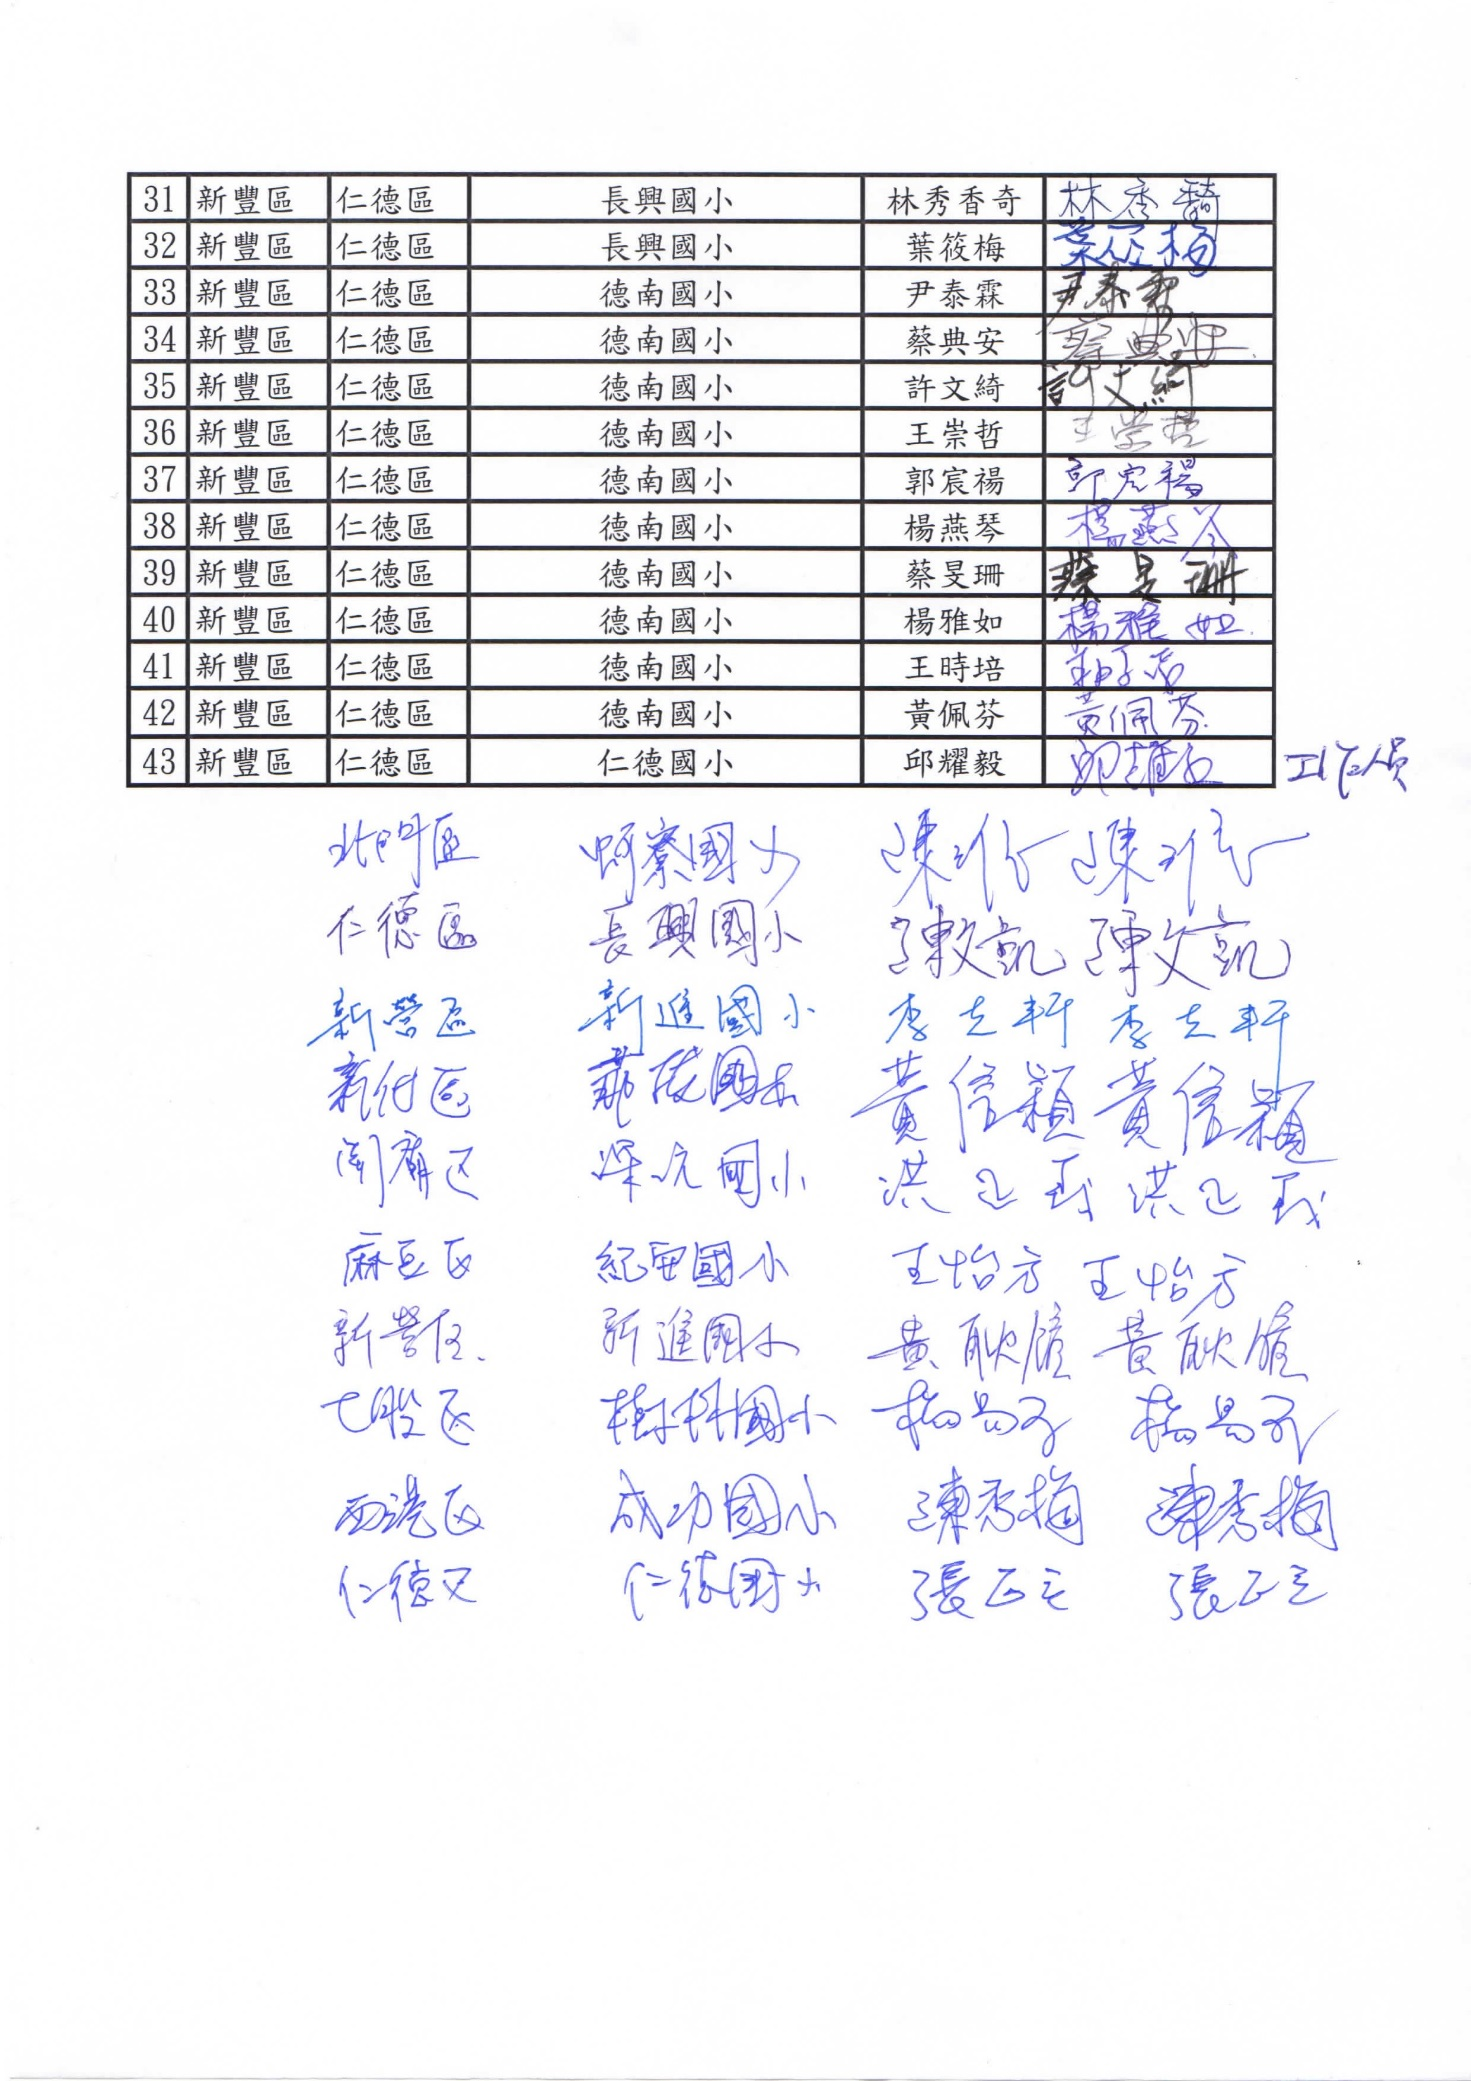 31 新豐區 仁德區 長興國小 林秀香奇 林秀
32 新豐區 仁德區 長興國小 葉筱梅 葉筱梅
33 新豐區 仁德區 德南國小 尹泰霖 尹泰霖
34 新豐區 仁德區 德南國小 蔡典安 蔡典安
35 新豐區 仁德區 德南國小 許文綺 許文綺
36 新豐區 仁德區 德南國小 王崇哲 王崇哲
37 新豐區 仁德區 德南國小 郭宸禓 郭宸禓
38 新豐區 仁德區 德南國小 楊燕琴 楊燕琴
39 新豐區 仁德區 德南國小 蔡旻珊 蔡旻珊
40 新豐區 仁德區 德南國小 楊雅如 楊雅如
41 新豐區 仁德區 德南國小 王時培 王時培
42 新豐區 仁德區 德南國小 黃佩芬 黃佩芬
43 新豐區 仁德區 仁德國小 邱耀毅 邱耀毅 工作人員
北門區 蚵寮國小 陳 陳
仁德區 長興國小 陳文凱 陳文凱
新營區 新進國小 李志軒 李志軒
新化區 國小 黃信穎 黃信穎
關廟区 深坑國小 洪正 洪正
麻豆区 紀安國小 王怡方 王怡方
新營区 新進國小 黃耿 黃耿
七股区 樹林國小 楊昌 楊昌
西港区 成功國小 陳秀梅 陳秀梅
仁德区 仁德國小 張正立 張正立